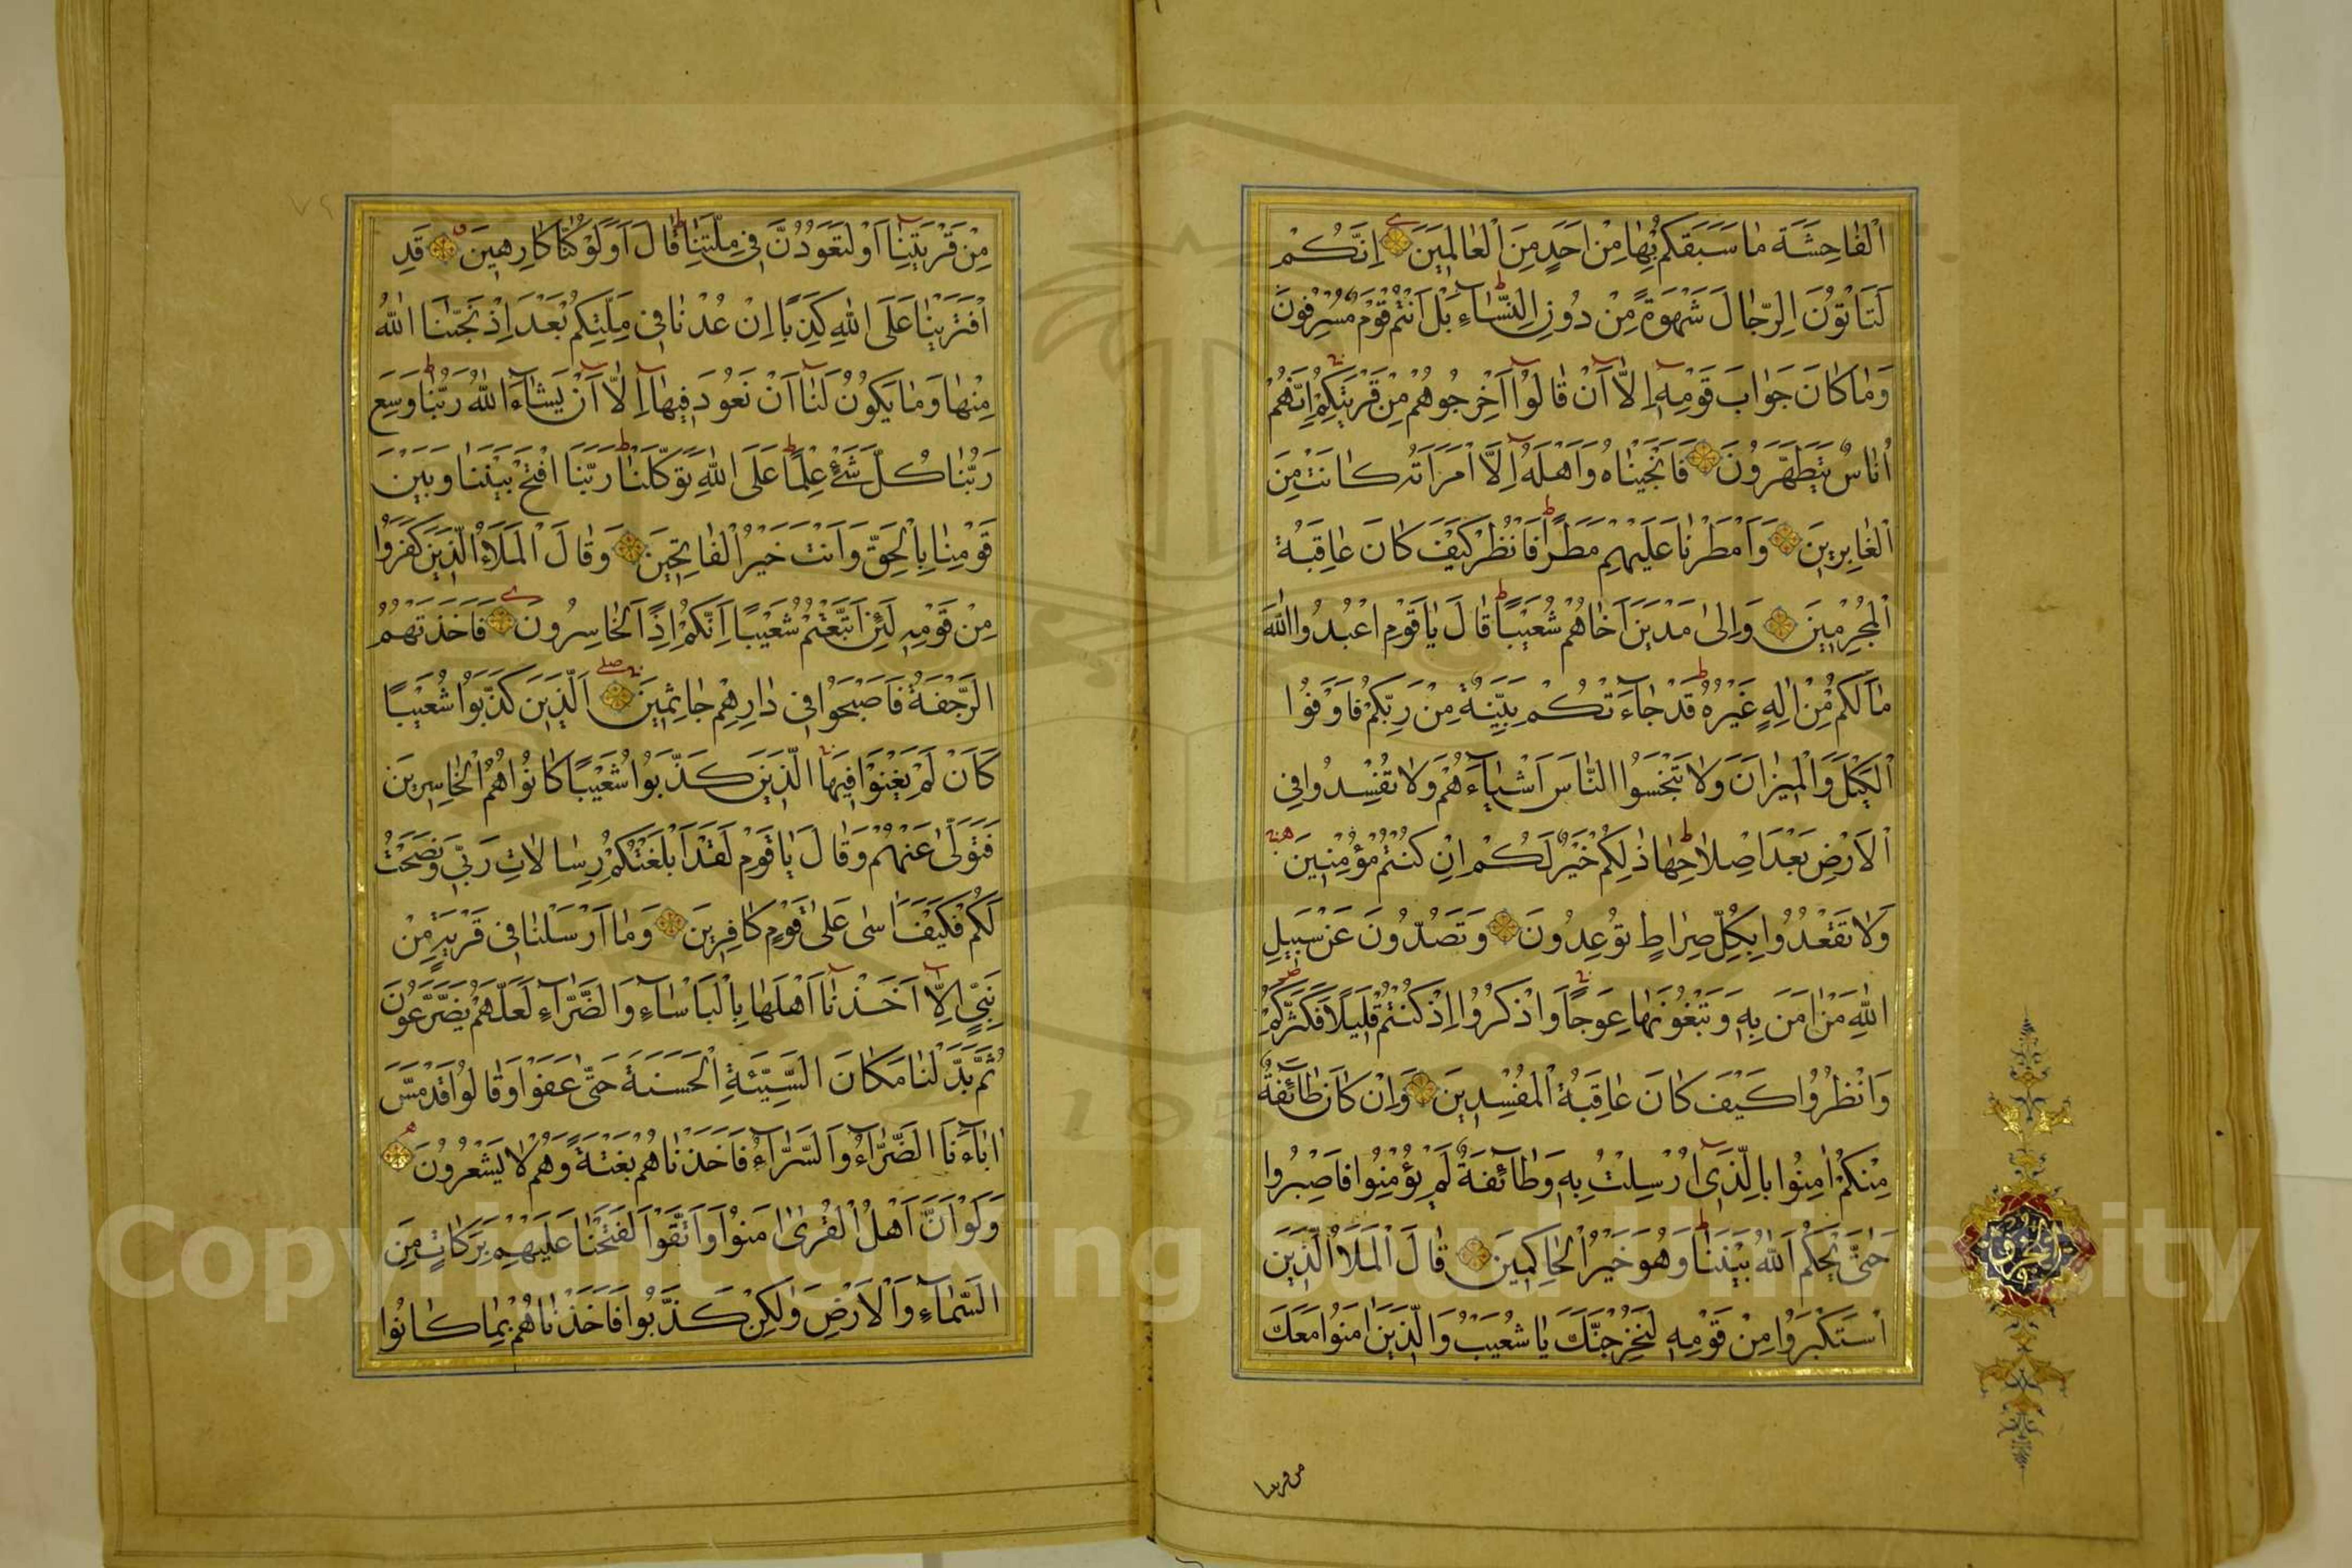 اَلْفَاحِشَةَ مَا سَبَقَكُمْ بِهَا مِنْ اَحَدٍ مِنَ الْعَالَمِينَ اِنَّكُمْ
لَتَأْتُونَ الرِّجَالَ شَهْوَةً مِنْ دُونِ النِّسَآءِ بَلْ اَنْتُمْ قَوْمٌ مُسْرِفُونَ
وَمَا كَانَ جَوَابَ قَوْمِهِ اِلَّا اَنْ قَالُوا اَخْرِجُوهُمْ مِنْ قَرْيَتِكُمْ اِنَّهُمْ
اُنَاسٌ يَتَطَهَّرُونَ فَاَنْجَيْنَاهُ وَاَهْلَهُ اِلَّا امْرَاَتَهُ كَانَتْ مِنَ
الْغَابِرِينَ وَاَمْطَرْنَا عَلَيْهِمْ مَطَرًا فَانْظُرْ كَيْفَ كَانَ عَاقِبَةُ
الْمُجْرِمِينَ وَاِلىٰ مَدْيَنَ اَخَاهُمْ شُعَيْبًا قَالَ يَا قَوْمِ اعْبُدُوا اللّٰهَ
مَا لَكُمْ مِنْ اِلٰهٍ غَيْرُهُ قَدْ جَآءَتْكُمْ بَيِّنَةٌ مِنْ رَبِّكُمْ فَاَوْفُوا
الْكَيْلَ وَالْمِيزَانَ وَلَا تَبْخَسُوا النَّاسَ اَشْيَآءَهُمْ وَلَا تُفْسِدُوا فِي
الْاَرْضِ بَعْدَ اِصْلَاحِهَا ذٰلِكُمْ خَيْرٌ لَكُمْ اِنْ كُنْتُمْ مُؤْمِنِينَ
وَلَا تَقْعُدُوا بِكُلِّ صِرَاطٍ تُوعِدُونَ وَتَصُدُّونَ عَنْ سَبِيلِ
اللّٰهِ مَنْ اٰمَنَ بِهِ وَتَبْغُونَهَا عِوَجًا وَاذْكُرُوا اِذْ كُنْتُمْ قَلِيلًا فَكَثَّرَكُمْ
وَانْظُرُوا كَيْفَ كَانَ عَاقِبَةُ الْمُفْسِدِينَ وَاِنْ كَانَ طَآئِفَةٌ
مِنْكُمْ اٰمَنُوا بِالَّذِي اُرْسِلْتُ بِهِ وَطَآئِفَةٌ لَمْ يُؤْمِنُوا فَاصْبِرُوا
حَتّٰى يَحْكُمَ اللّٰهُ بَيْنَنَا وَهُوَ خَيْرُ الْحَاكِمِينَ قَالَ الْمَلَاُ الَّذِينَ
اسْتَكْبَرُوا مِنْ قَوْمِهِ لَنُخْرِجَنَّكَ يَا شُعَيْبُ وَالَّذِينَ اٰمَنُوا مَعَكَ
من قريتنا
مِنْ قَرْيَتِنَا اَوْ لَتَعُودُنَّ فِي مِلَّتِنَا قَالَ اَوَلَوْ كُنَّا كَارِهِينَ قَدِ
افْتَرَيْنَا عَلَى اللّٰهِ كَذِبًا اِنْ عُدْنَا فِي مِلَّتِكُمْ بَعْدَ اِذْ نَجّٰينَا اللّٰهُ
مِنْهَا وَمَا يَكُونُ لَنَا اَنْ نَعُودَ فِيهَا اِلَّا اَنْ يَشَآءَ اللّٰهُ رَبُّنَا وَسِعَ
رَبُّنَا كُلَّ شَيْءٍ عِلْمًا عَلَى اللّٰهِ تَوَكَّلْنَا رَبَّنَا افْتَحْ بَيْنَنَا وَبَيْنَ
قَوْمِنَا بِالْحَقِّ وَاَنْتَ خَيْرُ الْفَاتِحِينَ وَقَالَ الْمَلَاُ الَّذِينَ كَفَرُوا
مِنْ قَوْمِهِ لَئِنِ اتَّبَعْتُمْ شُعَيْبًا اِنَّكُمْ اِذًا لَخَاسِرُونَ فَاَخَذَتْهُمُ
الرَّجْفَةُ فَاَصْبَحُوا فِي دَارِهِمْ جَاثِمِينَ اَلَّذِينَ كَذَّبُوا شُعَيْبًا
كَاَنْ لَمْ يَغْنَوْا فِيهَا الَّذِينَ كَذَّبُوا شُعَيْبًا كَانُوا هُمُ الْخَاسِرِينَ
فَتَوَلّٰى عَنْهُمْ وَقَالَ يَا قَوْمِ لَقَدْ اَبْلَغْتُكُمْ رِسَالَاتِ رَبِّي وَنَصَحْتُ
لَكُمْ فَكَيْفَ اٰسٰى عَلٰى قَوْمٍ كَافِرِينَ وَمَا اَرْسَلْنَا فِي قَرْيَةٍ مِنْ
نَبِيٍّ اِلَّا اَخَذْنَا اَهْلَهَا بِالْبَاْسَآءِ وَالضَّرَّآءِ لَعَلَّهُمْ يَضَّرَّعُونَ
ثُمَّ بَدَّلْنَا مَكَانَ السَّيِّئَةِ الْحَسَنَةَ حَتّٰى عَفَوْا وَقَالُوا قَدْ مَسَّ
اٰبَآءَنَا الضَّرَّآءُ وَالسَّرَّآءُ فَاَخَذْنَاهُمْ بَغْتَةً وَهُمْ لَا يَشْعُرُونَ
وَلَوْ اَنَّ اَهْلَ الْقُرٰى اٰمَنُوا وَاتَّقَوْا لَفَتَحْنَا عَلَيْهِمْ بَرَكَاتٍ مِنَ
السَّمَآءِ وَالْاَرْضِ وَلٰكِنْ كَذَّبُوا فَاَخَذْنَاهُمْ بِمَا كَانُوا
Copyright © King Saud University
1957